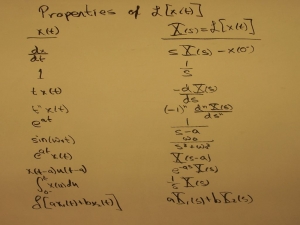 Properties of ℒ[x(t)]
x(t) X(s)=ℒ[x(t)]
dx/dt sX(s) - x(0⁻)
1 1/s
t x(t) -dX(s)/ds
tⁿ x(t) (-1)ⁿ dⁿX(s)/dsⁿ
e^at 1/(s-a)
sin(ω₀t) ω₀/(s²+ω₀²)
e^at x(t) X(s-a)
x(t-a)u(t-a) e^-as X(s)
∫₀₋^t x(λ)dλ 1/s X(s)
ℒ[ax₁(t)+bx₂(t)] aX₁(s)+bX₂(s)